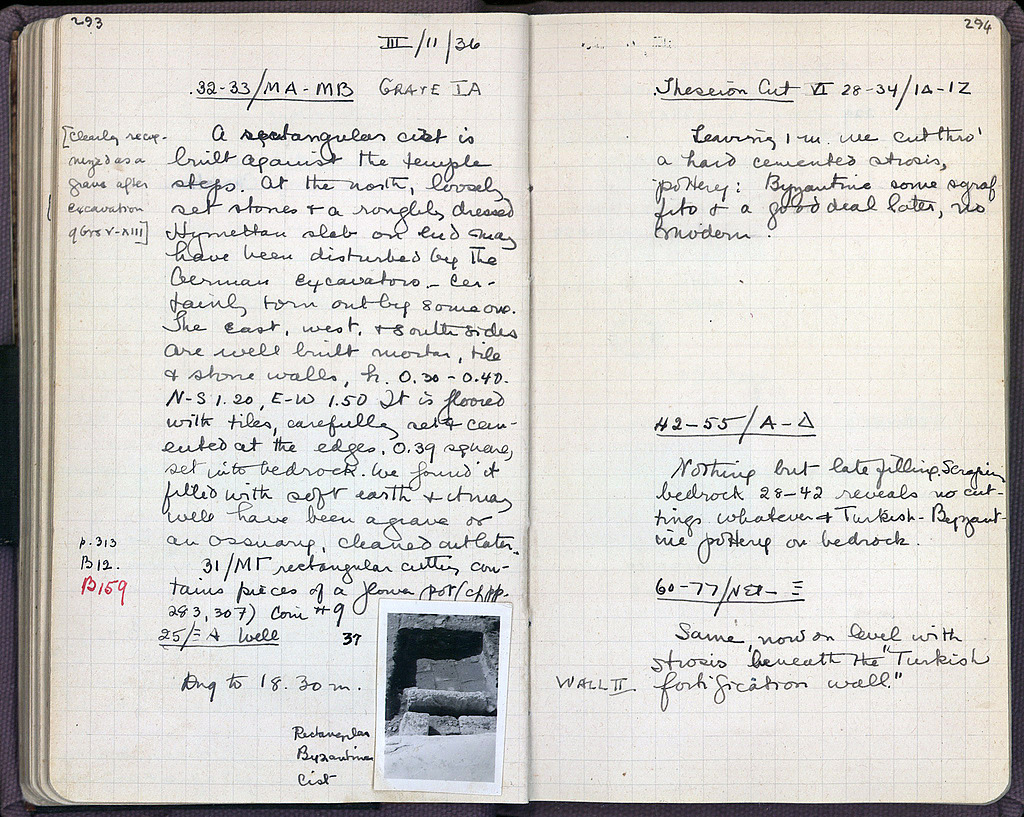 293
III/11/36
32-33/MA-MB GRAVE IA
[Clearly recog-
nized as a
grave after
excavation
of Grs V-XIII]
A rectangular cist is
built against the temple
steps. At the north, loosely
set stones & a roughly dressed
Hymettan slab on end may
have been disturbed by the
German excavators - cer-
tainly torn out by someone.
The east, west, & south sides
are well built mortar, tile
& stone walls, h. 0.30 - 0.40.
N-S 1.20, E-W 1.50 It is floored
with tiles, carefully set & cem-
ented at the edges, 0.39 square,
set into bedrock. We found it
filled with soft earth & it may
well have been a grave or
an ossuary, cleaned out later.
p. 313
B12.
B159
31/MΓ rectangular cutting con-
tains pieces of a flower pot (cf pp.
283, 307) Coin #9
25/ΞA Well 37
Dug to 18.30 m.
Rectangular
Byzantine
Cist
294
Theseion Cut VI 28-34/ΙΔ-ΙΖ
Leaving 1 m. we cut thro'
a hard cemented strosis,
pottery: Byzantine some sgraf-
fito & a good deal later, no
modern.
42-55/A-Δ
Nothing but late filling. Scraping
bedrock 28-42 reveals no cut-
tings whatever & Turkish-Byzant-
ine pottery on bedrock.
60-77/ - Ξ
Same, now on level with
strosis beneath the "Turkish
WALL II fortification wall."